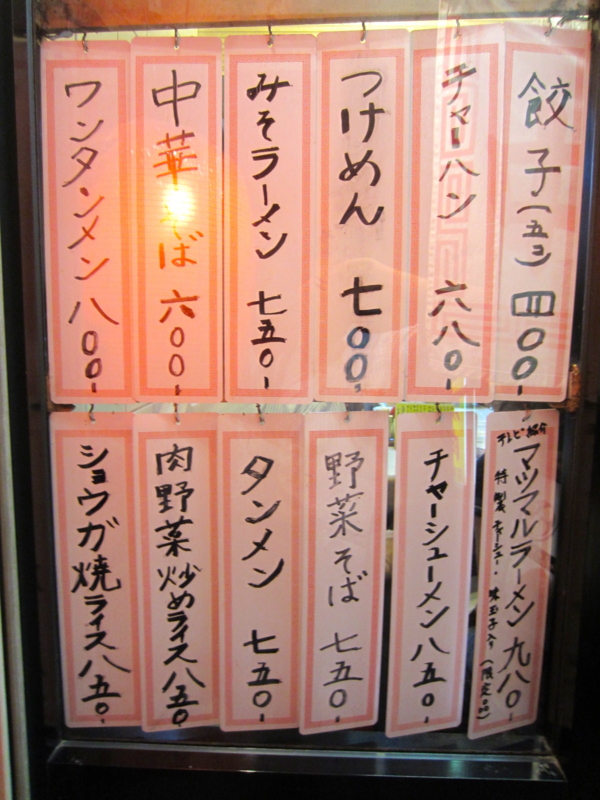 餃子(五コ) 四〇〇-
チャーハン 六八〇-
つけめん 七〇〇-
みそラーメン 七五〇-
中華そば 六〇〇-
ワンタンメン 八〇〇-
テレビ紹介
マツマルラーメン 九八〇-
特製チャーシュー・味玉子入り(限定
チャーシューメン 八五〇-
野菜そば 七五〇-
タンメン 七五〇-
肉野菜炒めライス 八五〇-
ショウガ焼ライス 八五〇-